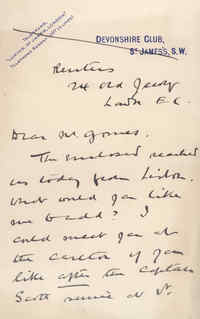 DEVONSHIRE CLUB,
ST JAMES'S, S.W.
Reuters
24 Old Jewry
London E.C.
Dear Mr Gomes.
The enclosed reached
us today from Lisbon.
What would you like
me to add? I
could meet you at
the Carlton if you
like after the Captain
Scott service at St.